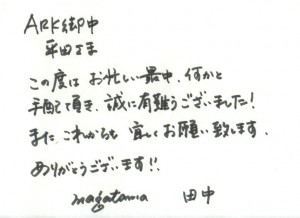 ARK御中
平田さま
この度は お忙しい最中、何かと
手配して頂き、誠に有難うございました!
また、これからも 宜しくお願い致します。
ありがとうございます!!
magatama 田中